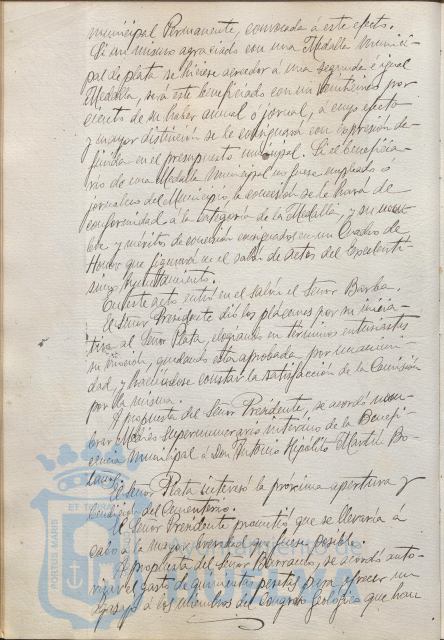 municipal Permanente, convocada á este efecto.
Si un mismo agraciado con una Medalla Munici-
pal de plata se hiciese acreedor á una segunda é igual
Medalla, será este beneficiado con un por
ciento de su haber anual ó jornal, á cuyo efecto
y mayor distinción se le consignará con expresión de-
finida en el presupuesto municipal. Si el beneficia-
rio de una Medalla Municipal no fuese empleado ó
jornalero del Municipio la concesión se le hará de
conformidad á la categoría de la Medalla, y su nom-
bre y méritos de concesión consignados en un Cuadro de
Honor que figurará en el salón de actos del Excelentí-
simo Ayuntamiento.
En este acto entró en el salón el Señor Borba.
El Señor Presidente dió los plácemes por su inicia-
tiva al Señor Plata, elogiando en términos entusiastas
su moción, quedando esta aprobada por unanimi-
dad, y haciéndose constar la satisfacción de la Comisión
por la misma.
A propuesta del Señor Presidente, se acordó nom-
brar Médico supernumerario interino de la Benefi-
cencia Municipal á Don Antonio Hipólito Martín Bo-
El Señor Plata interesó la próxima apertura y
bendición del Cementerio.
El Señor Presidente prometió que se llevaría á
cabo á la mayor brevedad que fuese posible.
A propuesta del Señor Barranco, se acordó auto-
rizar el gasto de quinientas pesetas para ofrecer un
á los miembros del Congreso Geológico que han
PORTUS MARIS
ET TERRAE
Ayuntamiento de
HUELVA